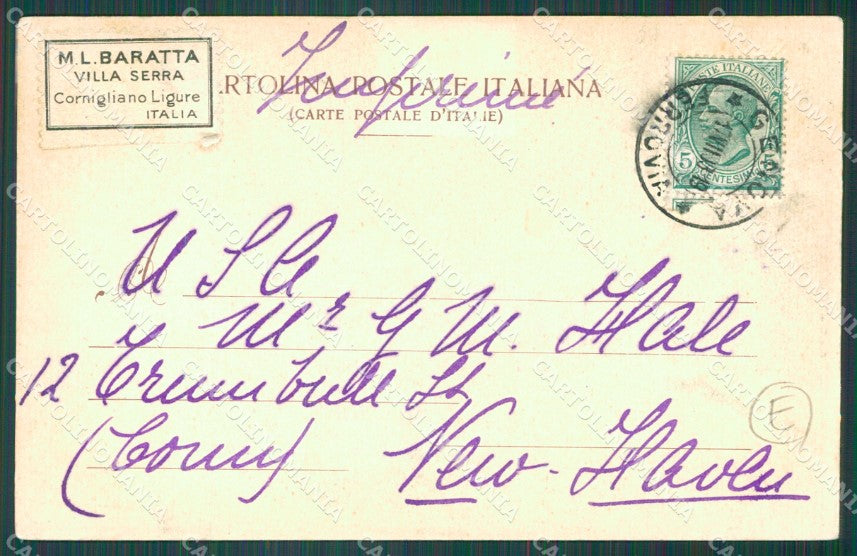 M.L. BARATTA
VILLA SERRA
Cornigliano Ligure
ITALIA
Imprimé
CARTOLINA POSTALE ITALIANA
(CARTE POSTALE D'ITALIE)
POSTE ITALIANE
5
CENTESIMI
GENOVA
FERROVIA
U S A
Mr G M. Hale
12 Trumbull St
(Conn) New-Haven
E
CARTOLINOMANIA